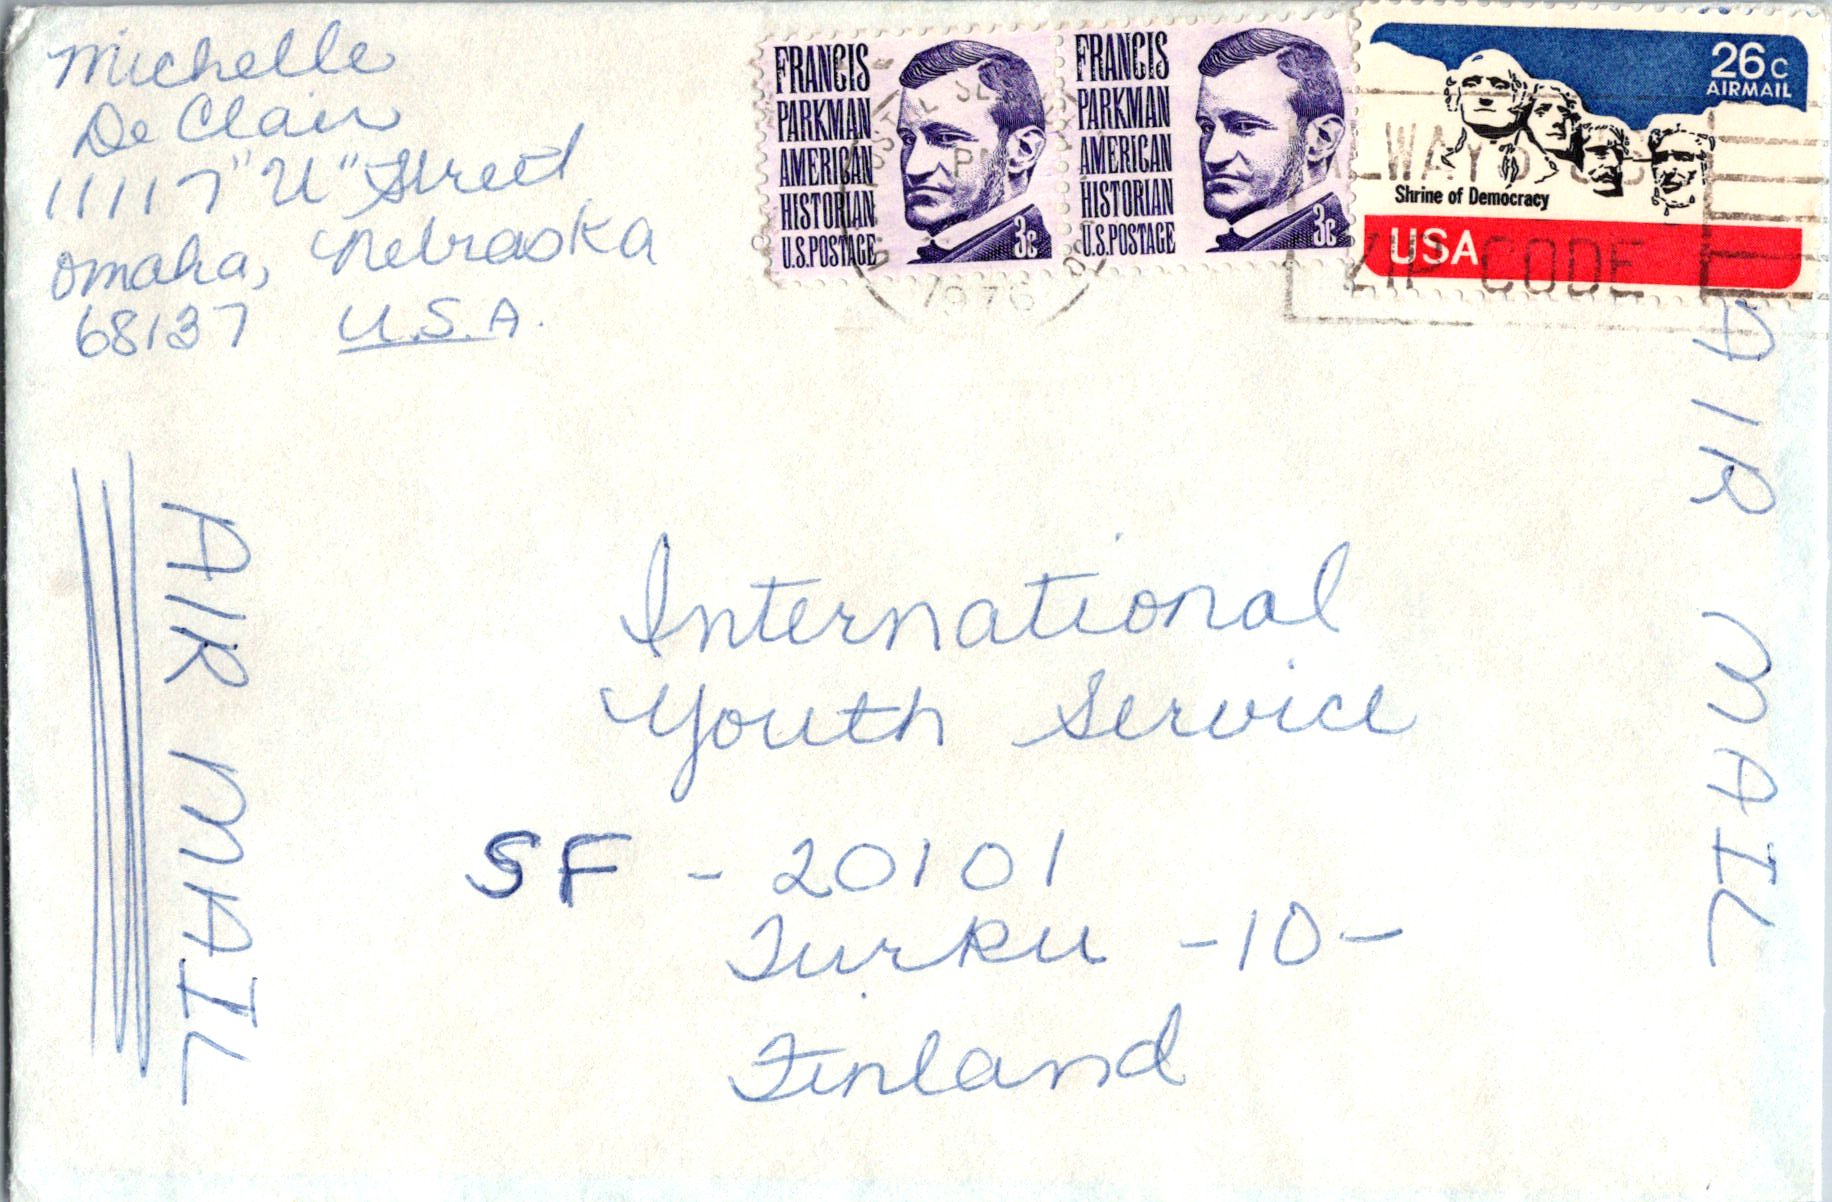 Michelle
De Clair
11117 "U" Street
Omaha, Nebraska
68137 U.S.A.
FRANCIS
PARKMAN
AMERICAN
HISTORIAN
U.S.POSTAGE
3c
FRANCIS
PARKMAN
AMERICAN
HISTORIAN
U.S.POSTAGE
3c
26c
AIRMAIL
Shrine of Democracy
USA
PM
1976
ALWAYS USE
ZIP CODE
AIR MAIL
AIR MAIL
International
Youth Service
SF - 20101
Turku -10-
Finland